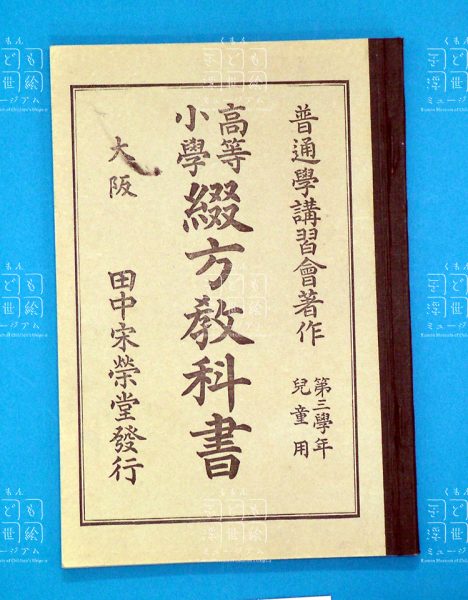 普通學講習會著作
第三學年
兒童用
高等
小學
綴方教科書
大阪
田中宋榮堂發行
くもん
子ども
浮世絵
ミュージアム